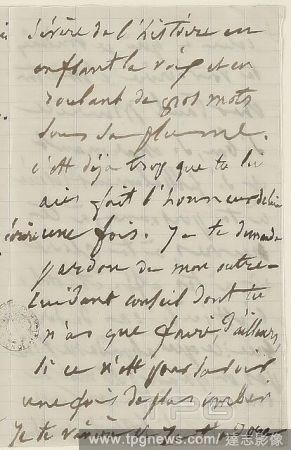 sévère de l'histoire en
enflant la voix et en
roulant de gros mots
sous sa plume.
c'est déjà trop que tu lui
aies fait l'honneur de lui
écrire une fois. Je te demande
pardon de mon outre-
cuidant conseil dont tu
n'as que faire, d'ailleurs,
si ce n'est pour savoir
une fois de plus combien
Je te
www.tpgnews.com 達志影像
TPG